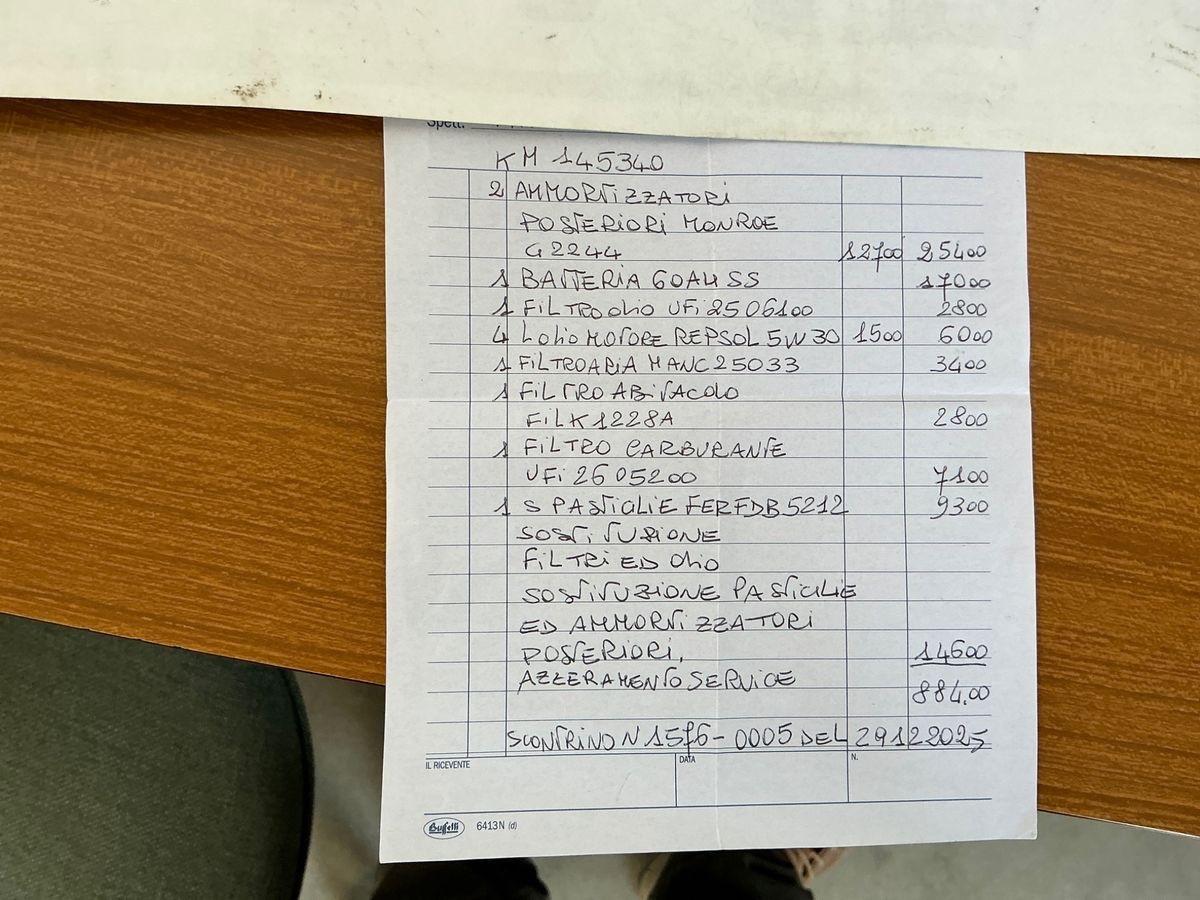 Spett.
KM 145340
2 AMMORTIZZATORI
POSTERIORI MONROE
G2244 12700 25400
1 BATTERIA 60AH SS 17000
1 FILTRO OLIO UFI 2506100 2800
4 L OLIO MOTORE REPSOL 5W30 1500 6000
1 FILTRO ARIA MANC25033 3400
1 FILTRO ABITACOLO
FILK1228A 2800
1 FILTRO CARBURANTE
UFI 2605200 7100
1 S PASTIGLIE FERFDB5212 9300
SOSTITUZIONE
FILTRI ED OLIO
SOSTITUZIONE PASTIGLIE
ED AMMORTIZZATORI
POSTERIORI, 14600
AZZERAMENTO SERVICE 884,00
SCONTRINO N 1576-0005 DEL 29122025
IL RICEVENTE DATA N.
Buffetti 6413N (d)